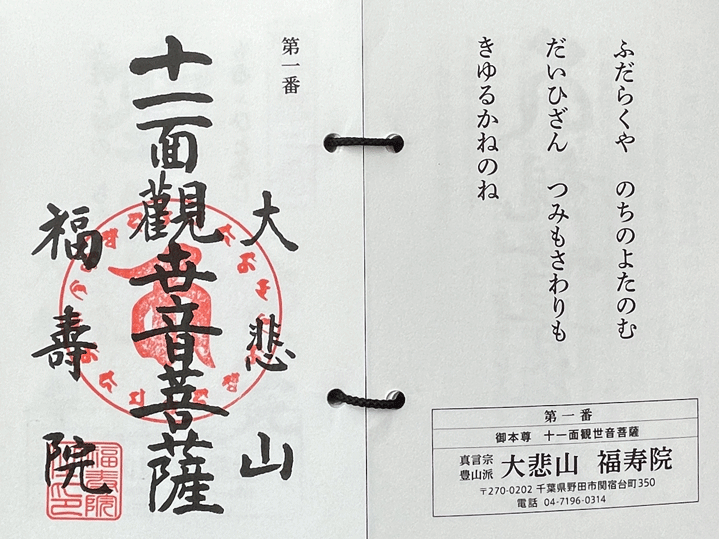 ふだらくや　のちのよたのむ
だいひざん　つみもさわりも
きゆるかねのね
第一番
御本尊　十一面観世音菩薩
真言宗
豊山派
大悲山　福寿院
〒270-0202 千葉県野田市関宿台町350
電話 04-7196-0314
第一番
大悲山
十一面觀世音菩薩
福壽院